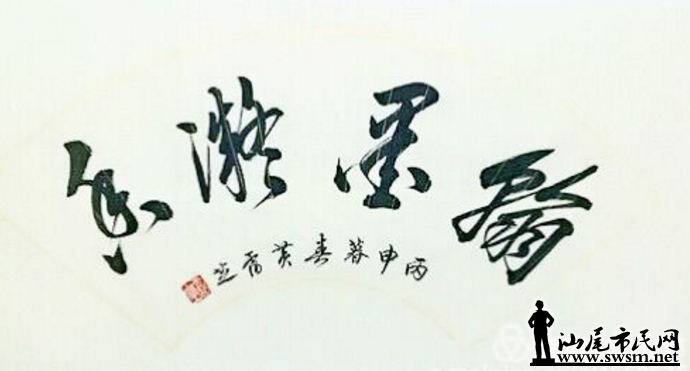 翰墨凝香
丙申暮春黄
汕尾市民网
www.swsm.net